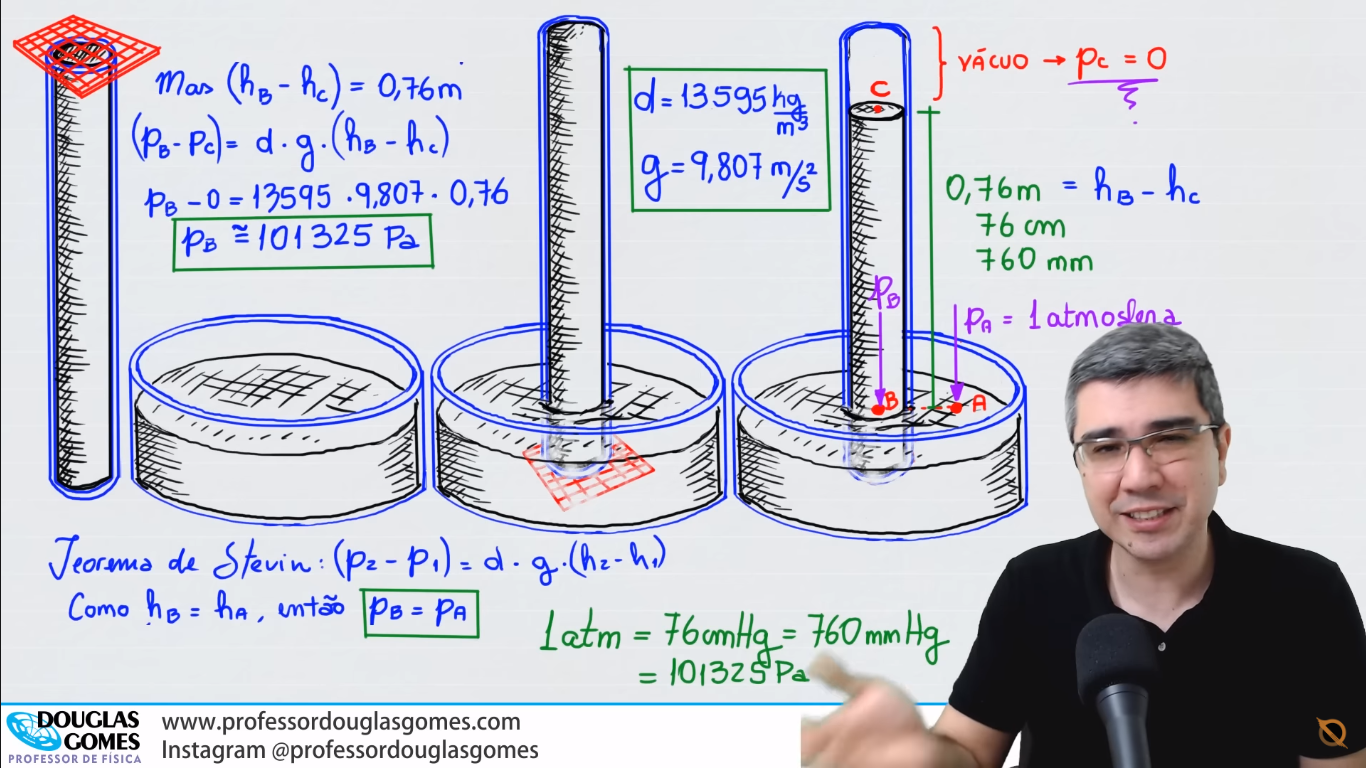 Mas (hB - hC) = 0,76m
(pB - pC) = d · g · (hB - hC)
pB - 0 = 13595 · 9,807 · 0,76
pB ≅ 101325 Pa
d = 13595 kg/m³
g = 9,807 m/s²
VÁCUO → pC = 0
C
0,76m = hB - hC
76 cm
760 mm
pB
pA = 1 atmosfera
B
A
Teorema de Stevin: (p2 - p1) = d · g · (h2 - h1)
Como hB = hA, então pB = pA
1 atm = 76cmHg = 760mmHg
= 101325 Pa
DOUGLAS
GOMES
PROFESSOR DE FÍSICA
www.professordouglasgomes.com
Instagram @professordouglasgomes